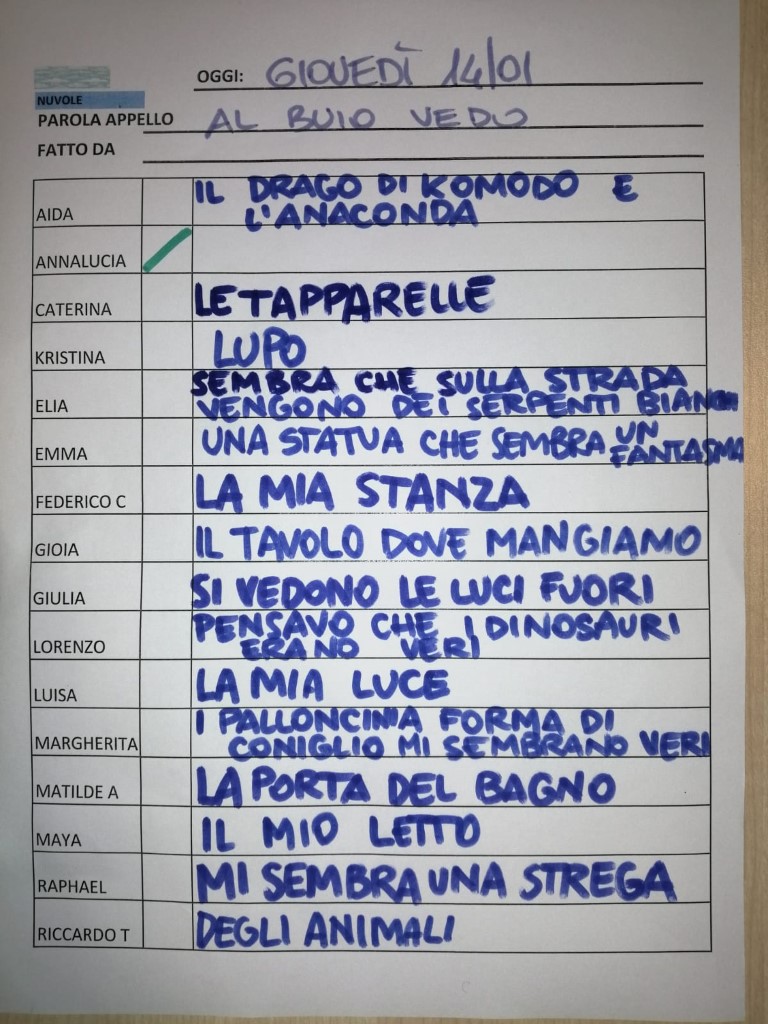 OGGI: GIOVEDÌ 14/01
NUVOLE
PAROLA APPELLO AL BUIO VEDO
FATTO DA
AIDA IL DRAGO DI KOMODO E
L'ANACONDA
ANNALUCIA
CATERINA LE TAPPARELLE
KRISTINA LUPO
ELIA SEMBRA CHE SULLA STRADA
VENGONO DEI SERPENTI BIANCHI
EMMA UNA STATUA CHE SEMBRA UN
FANTASMA
FEDERICO C LA MIA STANZA
GIOIA IL TAVOLO DOVE MANGIAMO
GIULIA SI VEDONO LE LUCI FUORI
LORENZO PENSAVO CHE I DINOSAURI
ERANO VERI
LUISA LA MIA LUCE
MARGHERITA I PALLONCINI A FORMA DI
CONIGLIO MI SEMBRANO VERI
MATILDE A LA PORTA DEL BAGNO
MAYA IL MIO LETTO
RAPHAEL MI SEMBRA UNA STREGA
RICCARDO T DEGLI ANIMALI